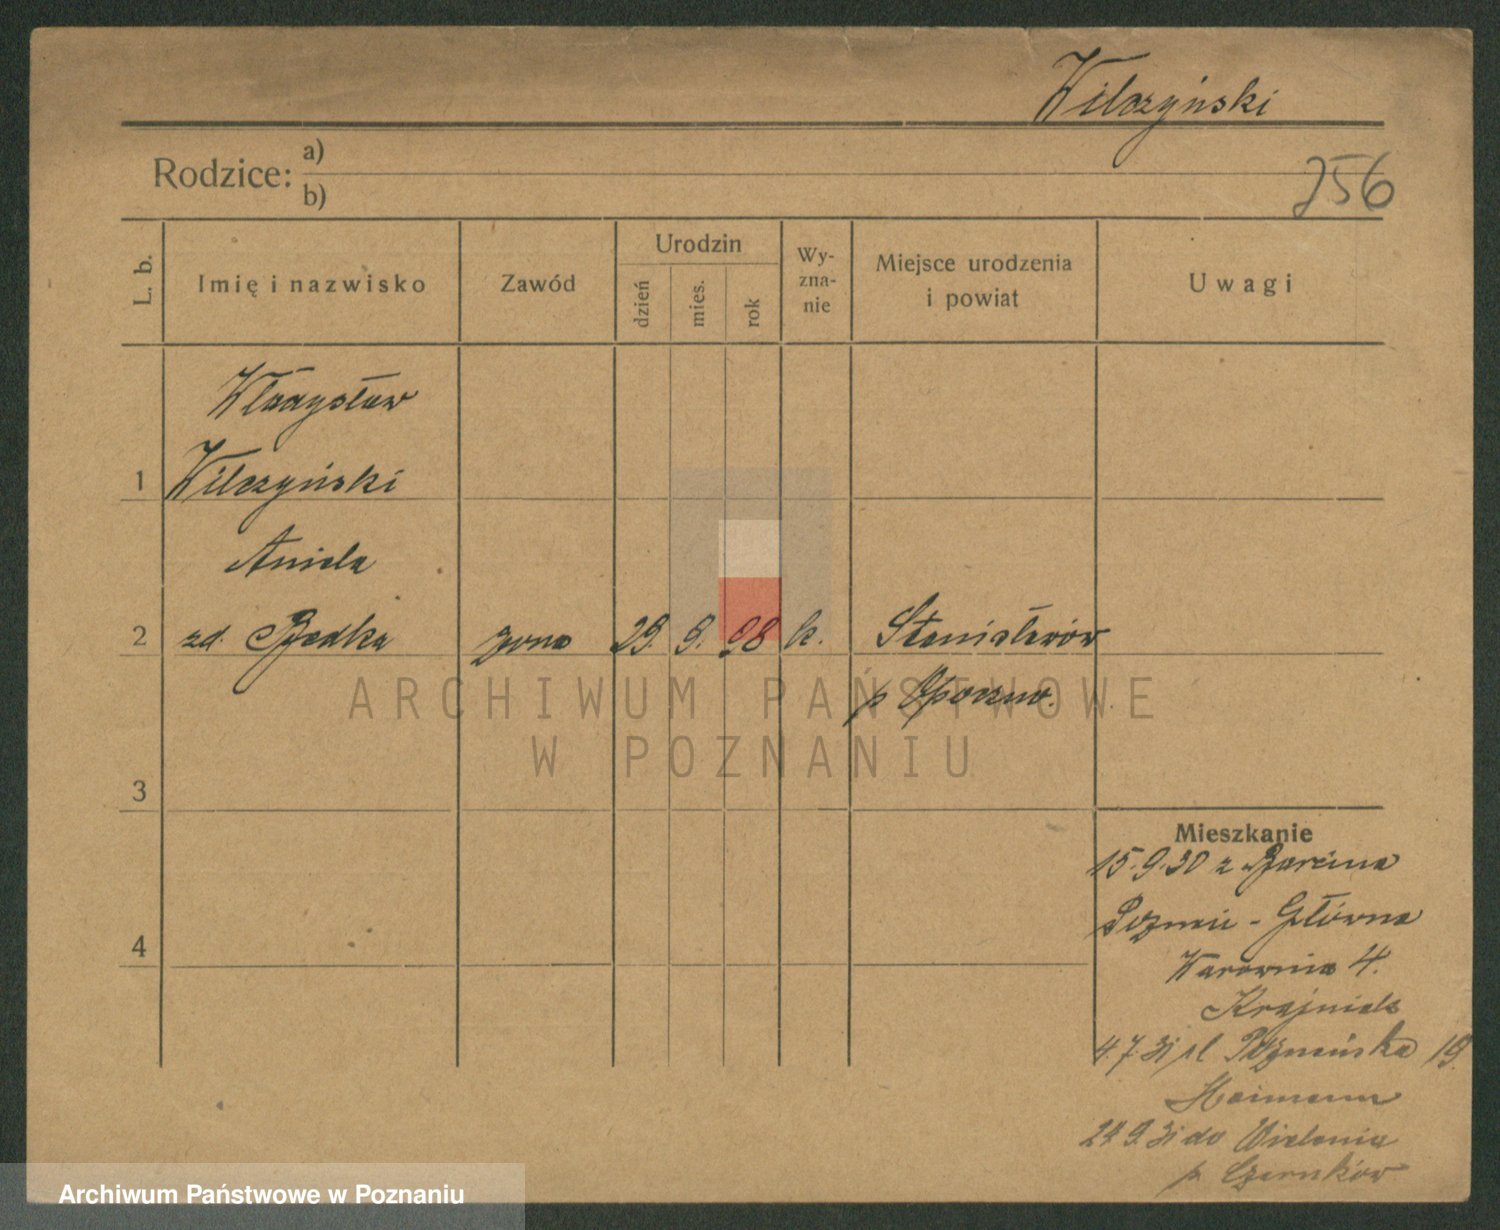 Wilczyński
Rodzice: a)
b)
256
L. b.
Imię i nazwisko
Zawód
Urodzin
dzień
mies.
rok
Wy-
zna-
nie
Miejsce urodzenia
i powiat
Uwagi
Władysław
1 Wilczyński
Aniela
2 zd. Bedka żona 29. 9. 98 k. Stanisławów
p Opoczno.
3
4
Mieszkanie
15.9.30 z Barcina
Poznań - Główna
Warownia 4.
Krajniak
4.7.31 pl Poznańska 19.
Heimann
29.9.31 do Wielenia
p. Czarnków
ARCHIWUM PAŃSTWOWE
W POZNANIU
Archiwum Państwowe w Poznaniu